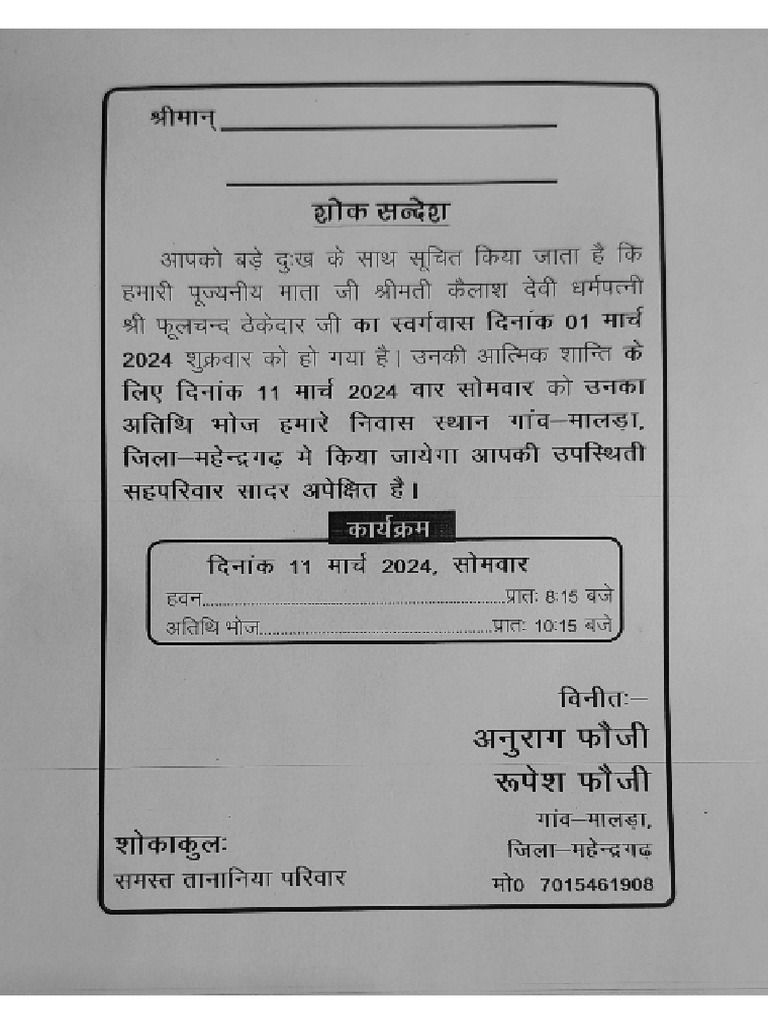 श्रीमान्
शोक सन्देश
आपको बड़े दुःख के साथ सूचित किया जाता है कि
हमारी पूज्यनीय माता जी श्रीमती कैलाश देवी धर्मपत्नी
श्री फूलचन्द ठेकेदार जी का स्वर्गवास दिनांक 01 मार्च
2024 शुक्रवार को हो गया है। उनकी आत्मिक शान्ति के
लिए दिनांक 11 मार्च 2024 वार सोमवार को उनका
अतिथि भोज हमारे निवास स्थान गांव–मालड़ा,
जिला–महेन्द्रगढ़ मे किया जायेगा आपकी उपस्थिती
सहपरिवार सादर अपेक्षित है।
कार्यक्रम
दिनांक 11 मार्च 2024, सोमवार
हवन..........प्रातः 8:15 बजे
अतिथि भोज..........प्रातः 10:15 बजे
विनीतः–
अनुराग फौजी
रूपेश फौजी
गांव–मालड़ा,
जिला–महेन्द्रगढ़
मो0 7015461908
शोकाकुलः
समस्त तानानिया परिवार